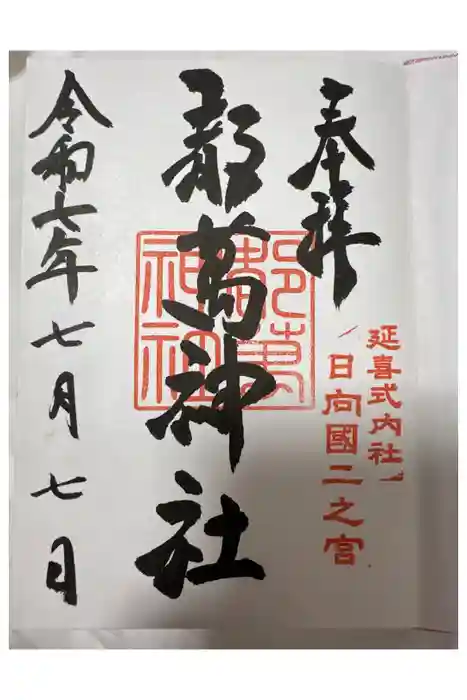 奉拝
延喜式内社
日向國二之宮
都萬神社
都萬神社
令和七年七月七日